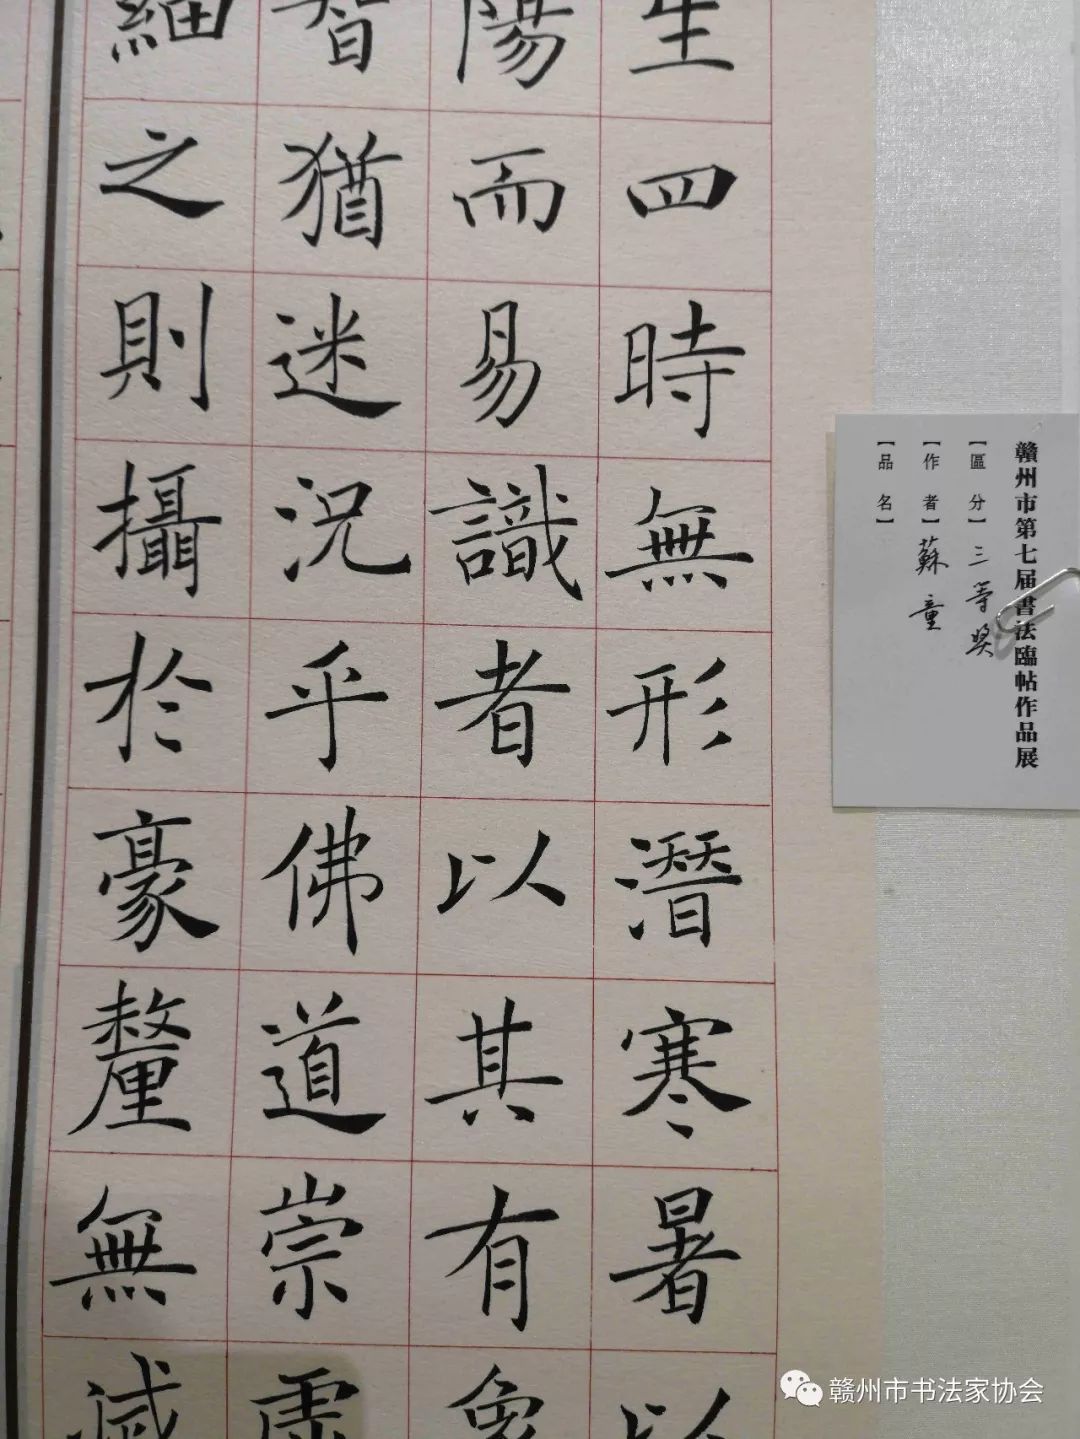 生四時無形潛寒暑以
陽而易識者以其有象
智猶迷況乎佛道崇虛
細之則攝於豪釐無滅
贛州市第七届書法臨帖作品展
【區分】三等奖
【作者】蘇童
【品名】
赣州市书法家协会